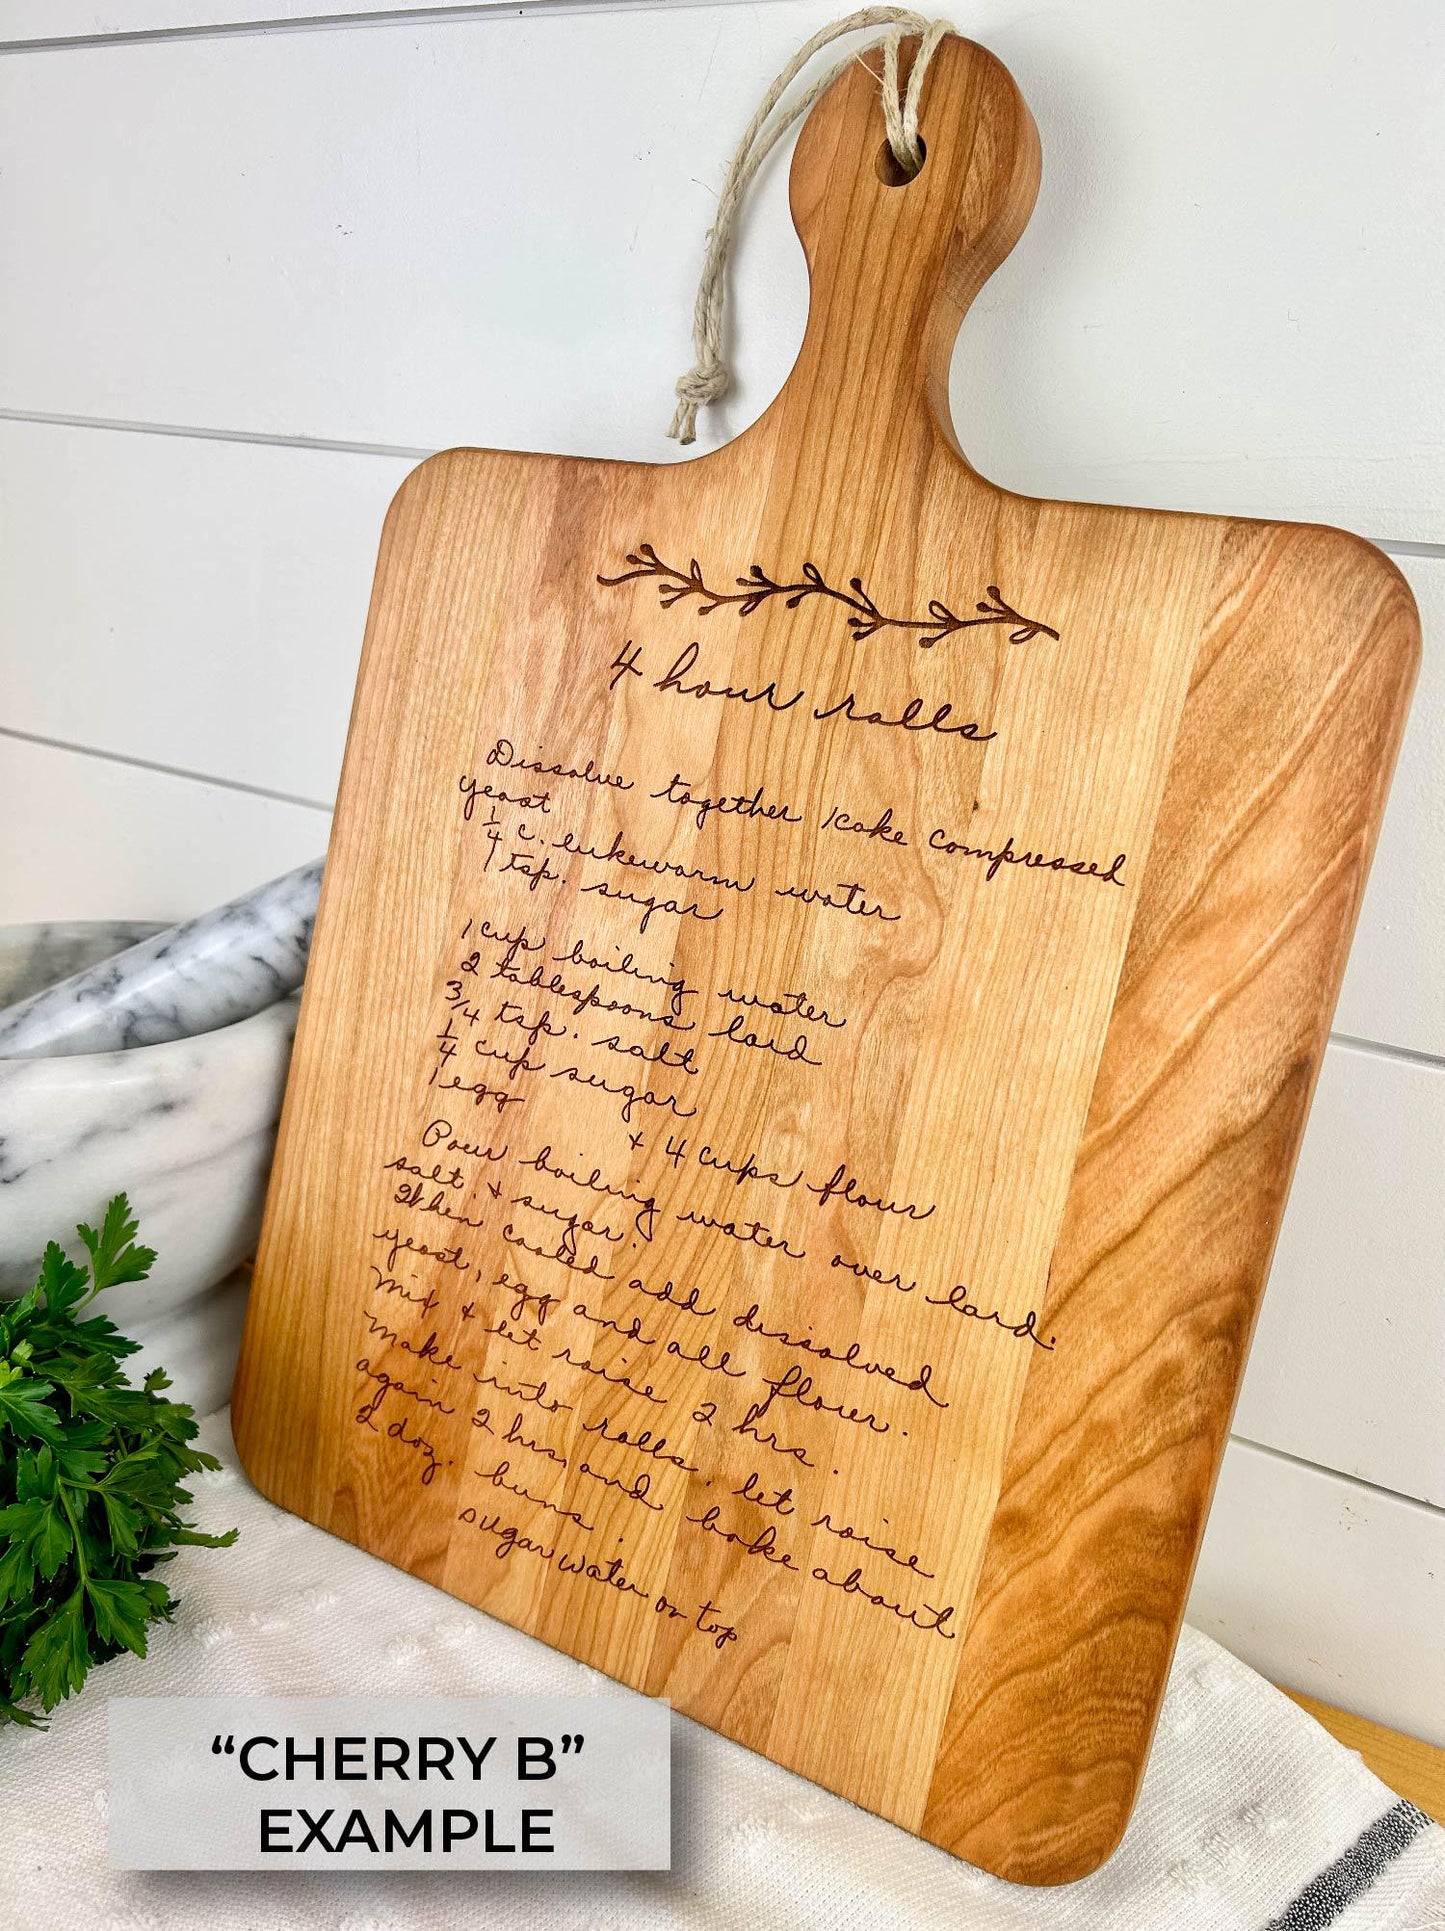 4 hour rolls
Dissolve together 1 cake compressed
yeast
1/4 c. lukewarm water
1 tsp. sugar
1 cup boiling water
2 tablespoons lard
3/4 tsp. salt
1/4 cup sugar
1 egg
+ 4 cups flour
Pour boiling water over lard.
salt. + sugar.
When cooled add dissolved
yeast, egg and all flour.
Mix + let raise 2 hrs.
Make into rolls. let raise
again 2 hrs. and bake about
2 doz. buns.
sugar water on top
“CHERRY B”
EXAMPLE